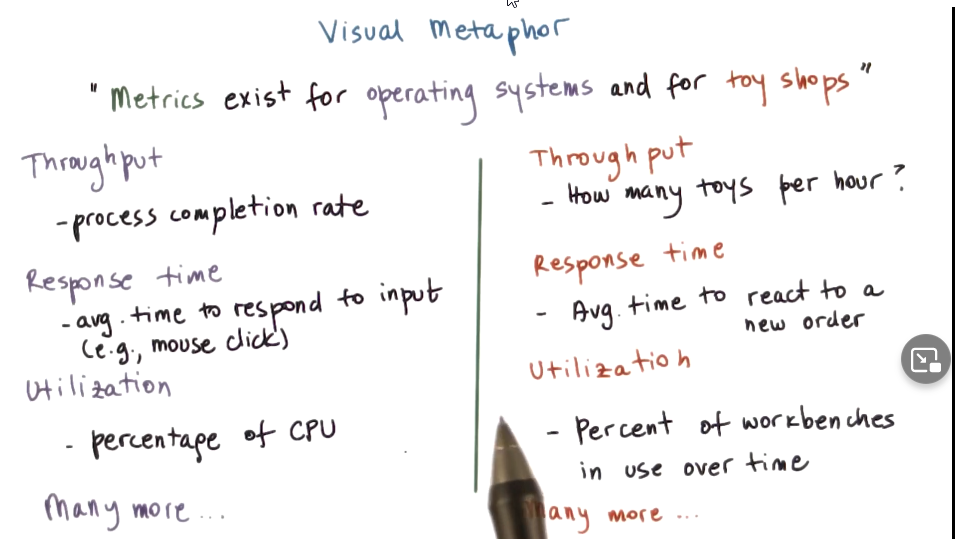 Visual Metaphor
"Metrics exist for operating systems and for toy shops"
Throughput
- process completion rate
Response time
- avg. time to respond to input
(e.g., mouse click)
Utilization
- percentage of CPU
Many more ...
Throughput
- How many toys per hour?
Response time
- Avg. time to react to a
new order
Utilization
- Percent of workbenches
in use over time
Many more ...